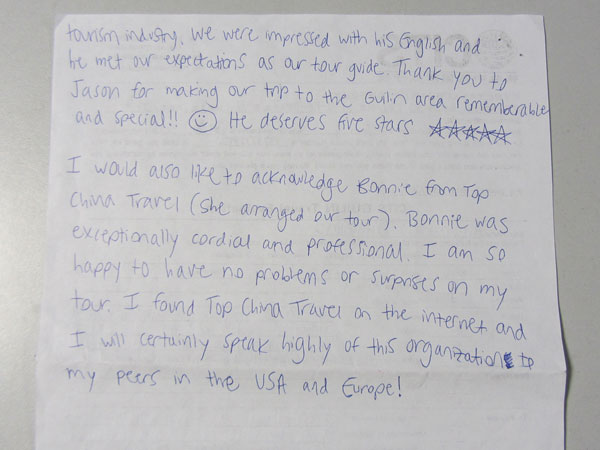 tourism industry. We were impressed with his English and
he met our expectations as our tour guide. Thank you to
Jason for making our trip to the Guilin area rememberable
and special!! ☺ He deserves five stars ☆☆☆☆☆
I would also like to acknowledge Bonnie from Top
China Travel (she arranged our tour). Bonnie was
exceptionally cordial and professional. I am so
happy to have no problems or surprises on my
tour. I found Top China Travel on the internet and
I will certainly speak highly of this organization to
my peers in the USA and Europe!